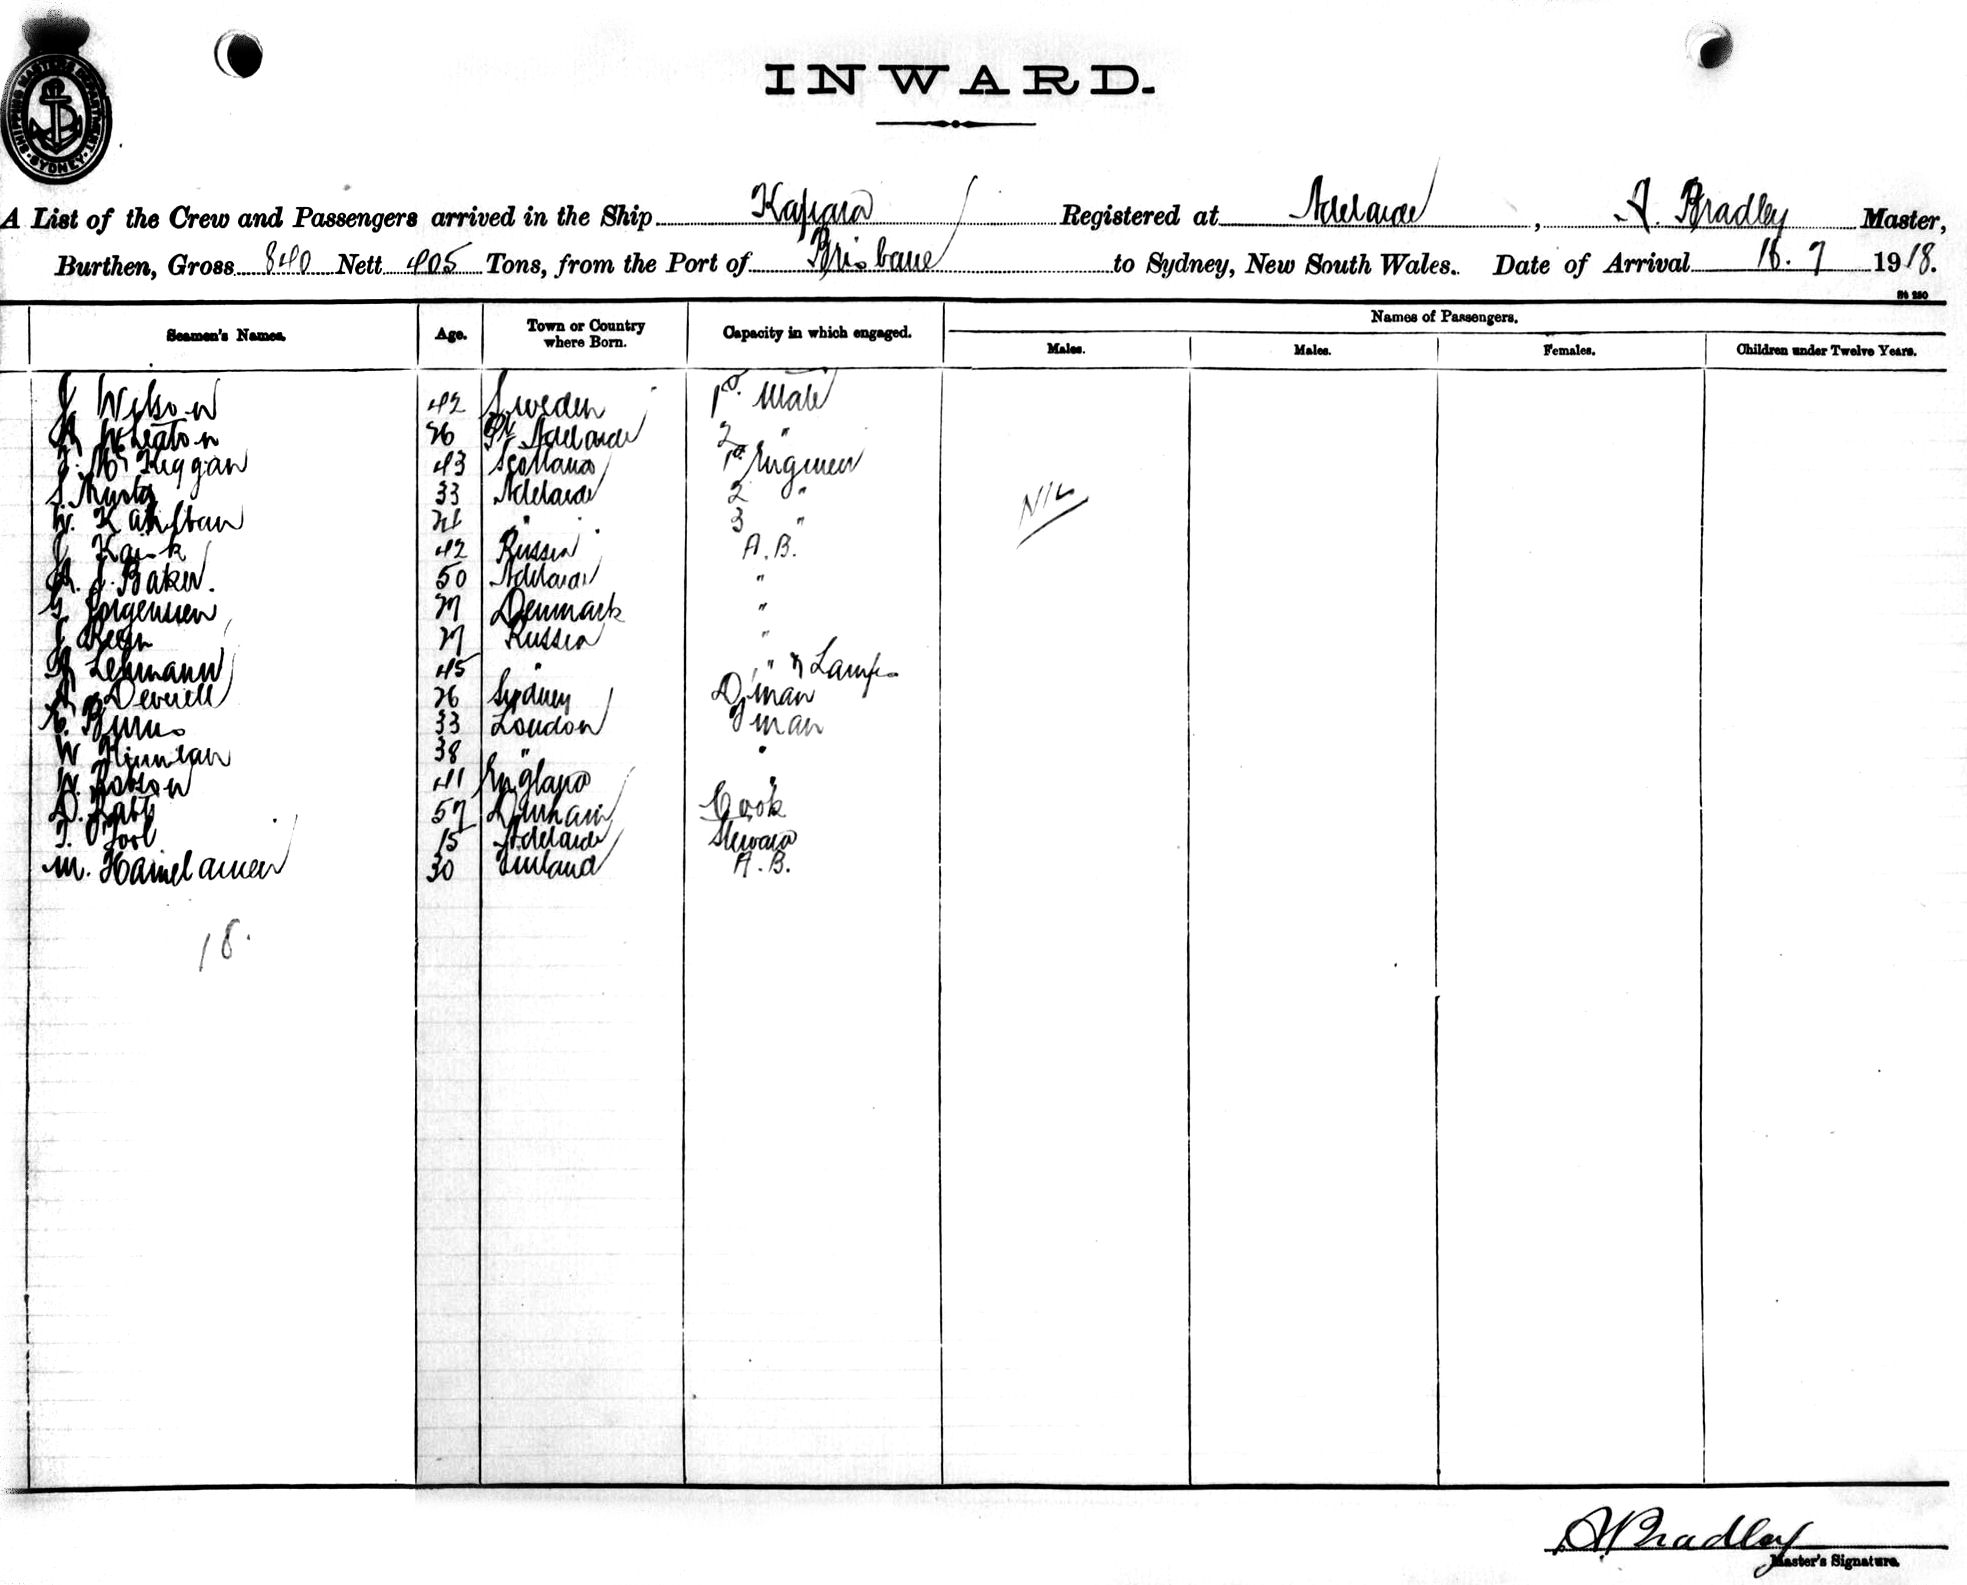 SHIPPING MASTERS DEPARTMENT SYDNEY
INWARD.
A List of the Crew and Passengers arrived in the Ship Kapara Registered at Adelaide, A. Bradley Master,
Burthen, Gross 840 Nett 405 Tons, from the Port of Brisbane to Sydney, New South Wales. Date of Arrival 16.7 1918.
Seamen's Names. Age. Town or Country where Born. Capacity in which engaged. Names of Passengers.
Males. Males. Females. Children under Twelve Years.
J Wilson 42 Sweden 1st Mate
A Wheaton 26 Pt Adelaide 2 "
J. McKeggan 43 Scotland 1st Engineer
S. 33 Adelaide 2 "
W. " 3 "
NIL
J 42 Russia A.B.
J. Baker. 50 Adelaide "
G Jorgensen 27 Denmark "
J 27 Russia "
A Lehmann 45 " " & Lamps
A Deverell 26 Sydney Dman
C. Burns 33 London Fman
W 38 " "
W. Robson 41 England "
D. 57 Cook
T. 15 Adelaide Steward
M. 30 Finland A.B.
18.
A Bradley
Master's Signature.